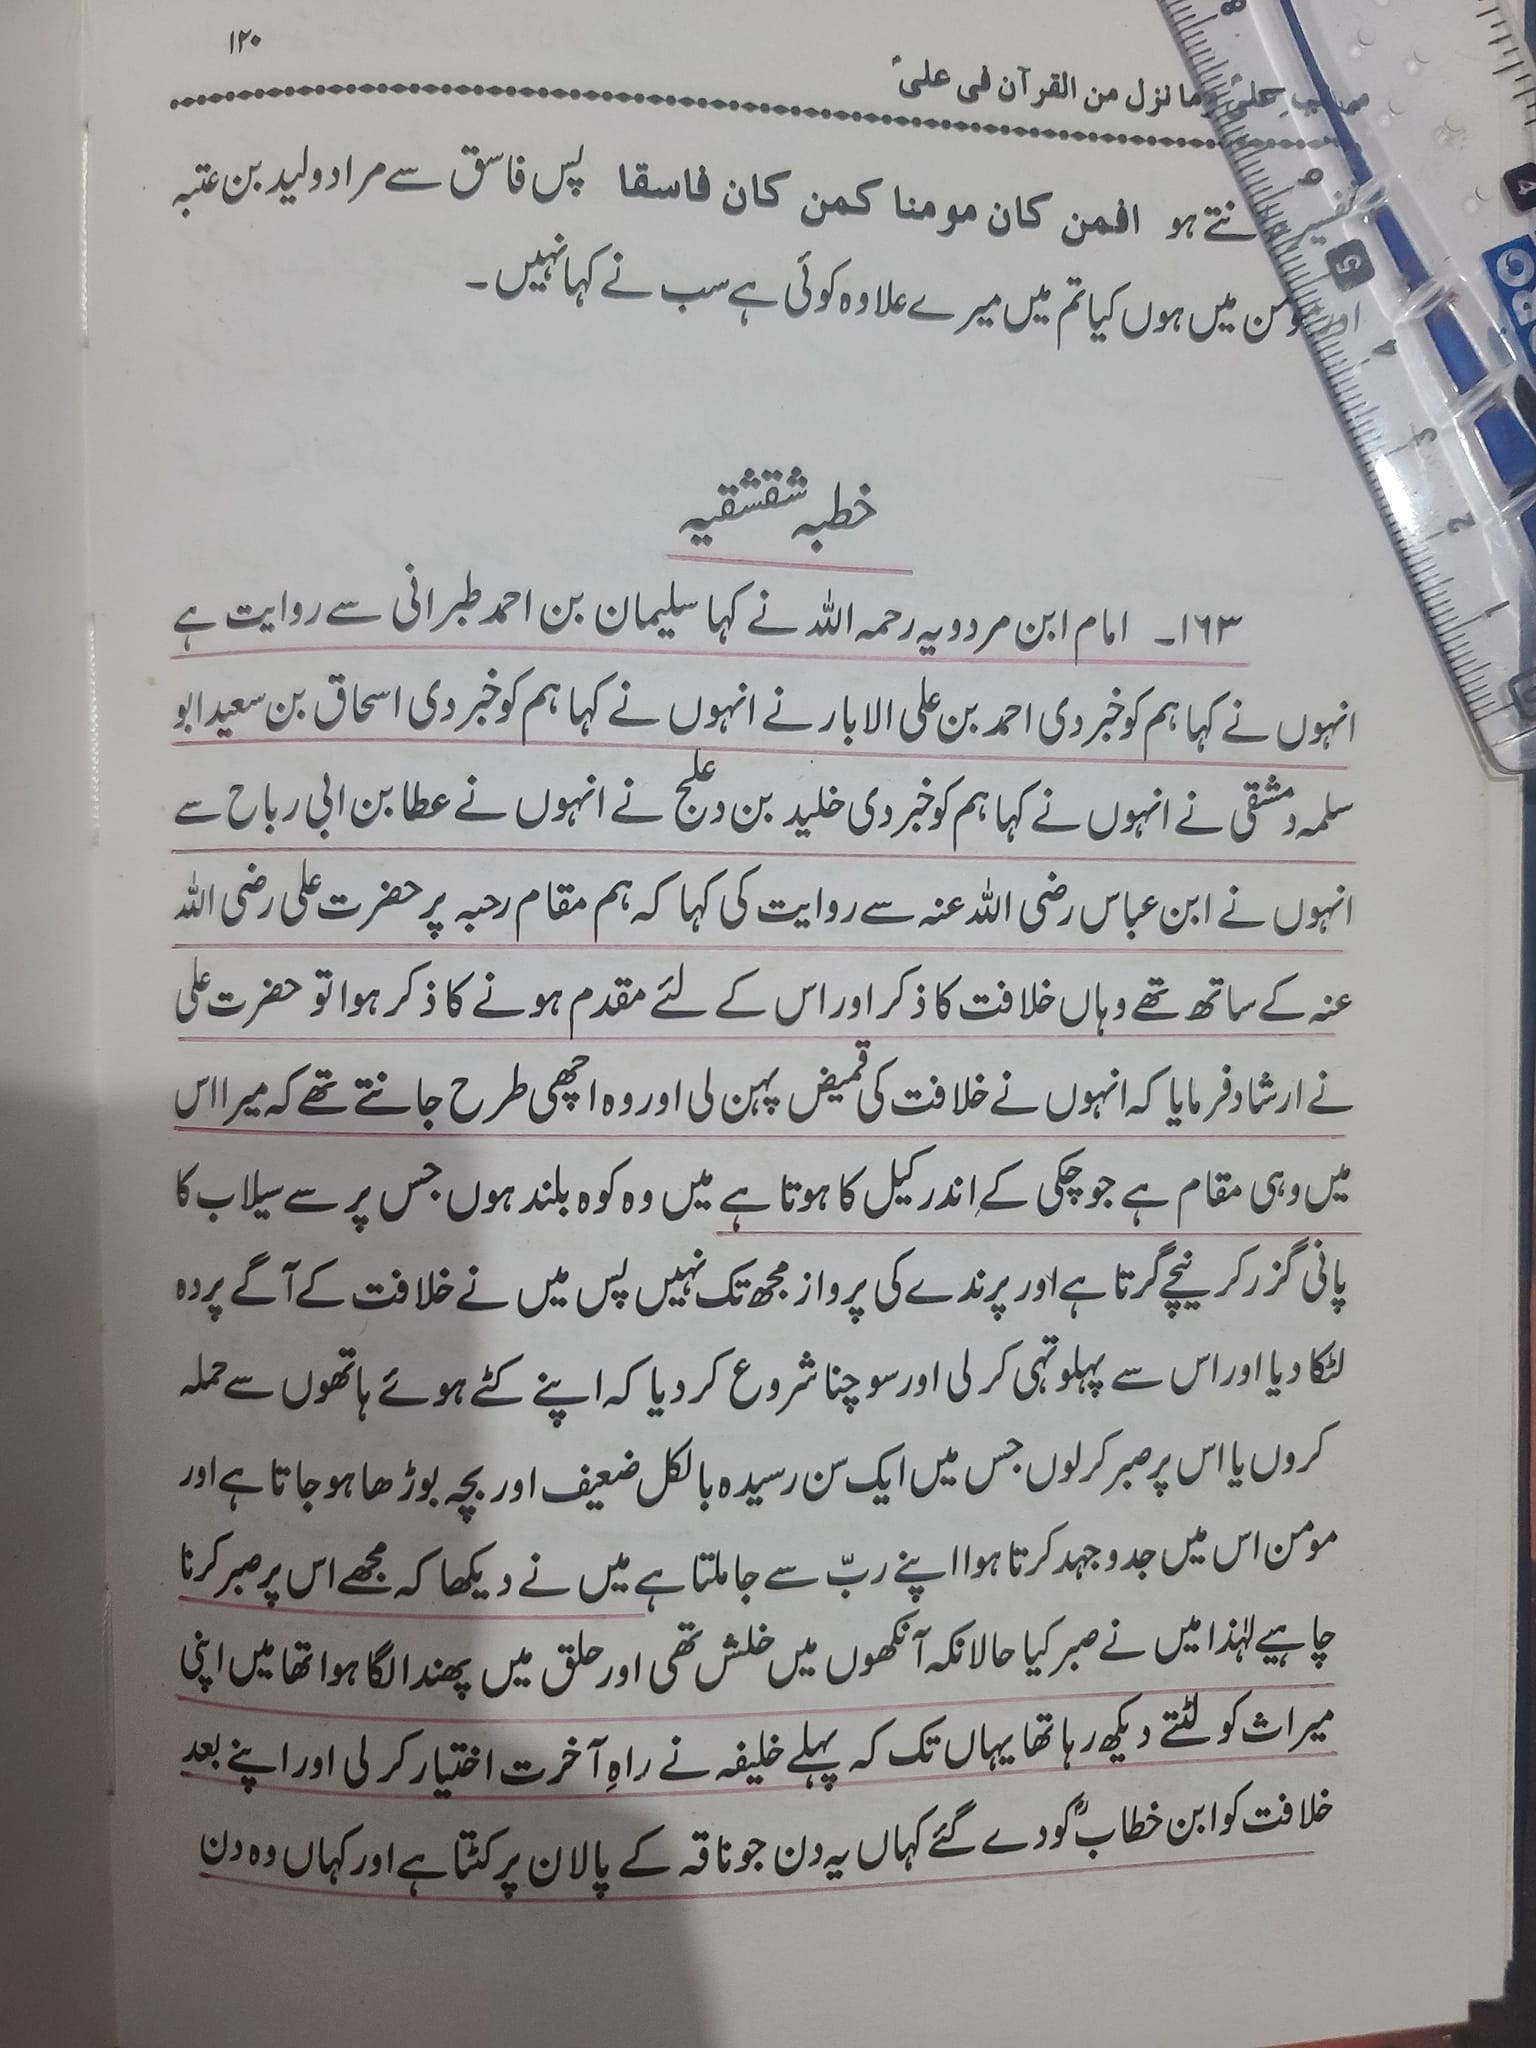 ۱۲۰
علیؑ وما نزل من القرآن فی علیؑ
نتے ہو افمن کان مومنا کمن کان فاسقا پس فاسق سے مراد ولید بن عتبہ
میں ہوں کیا تم میں میرے علاوہ کوئی ہے سب نے کہا نہیں۔
خطبہ شقشقیہ
۱۶۳۔ امام ابن مردویہ رحمہ اللہ نے کہا سلیمان بن احمد طبرانی سے روایت ہے
انہوں نے کہا ہم کو خبر دی احمد بن علی الابار نے انہوں نے کہا ہم کو خبر دی اسحاق بن سعید ابو
سلمہ دمشقی نے انہوں نے کہا ہم کو خبر دی خلید بن دعلج نے انہوں نے عطا بن ابی رباح سے
انہوں نے ابن عباس رضی اللہ عنہ سے روایت کی کہا کہ ہم مقام رحبہ پر حضرت علی رضی اللہ
عنہ کے ساتھ تھے وہاں خلافت کا ذکر اور اس کے لئے مقدم ہونے کا ذکر ہوا تو حضرت علی
نے ارشاد فرمایا کہ انہوں نے خلافت کی قمیض پہن لی اور وہ اچھی طرح جانتے تھے کہ میرا اس
میں وہی مقام ہے جو چکی کے اندر کیل کا ہوتا ہے میں وہ کوہ بلند ہوں جس پر سے سیلاب کا
پانی گزر کر نیچے گرتا ہے اور پرندے کی پرواز مجھ تک نہیں پس میں نے خلافت کے آگے پردہ
لٹکا دیا اور اس سے پہلو تہی کر لی اور سوچنا شروع کر دیا کہ اپنے کٹے ہوئے ہاتھوں سے حملہ
کروں یا اس پر صبر کرلوں جس میں ایک سن رسیدہ بالکل ضعیف اور بچہ بوڑھا ہو جاتا ہے اور
مومن اس میں جدوجہد کرتا ہوا اپنے ربّ سے جا ملتا ہے میں نے دیکھا کہ مجھے اس پر صبر کرنا
چاہیے لہٰذا میں نے صبر کیا حالانکہ آنکھوں میں خلش تھی اور حلق میں پھندا لگا ہوا تھا میں اپنی
میراث کو لٹتے دیکھ رہا تھا یہاں تک کہ پہلے خلیفہ نے راہِ آخرت اختیار کر لی اور اپنے بعد
خلافت کو ابن خطابؓ کو دے گئے کہاں یہ دن جو ناقہ کے پالان پر کٹتا ہے اور کہاں وہ دن